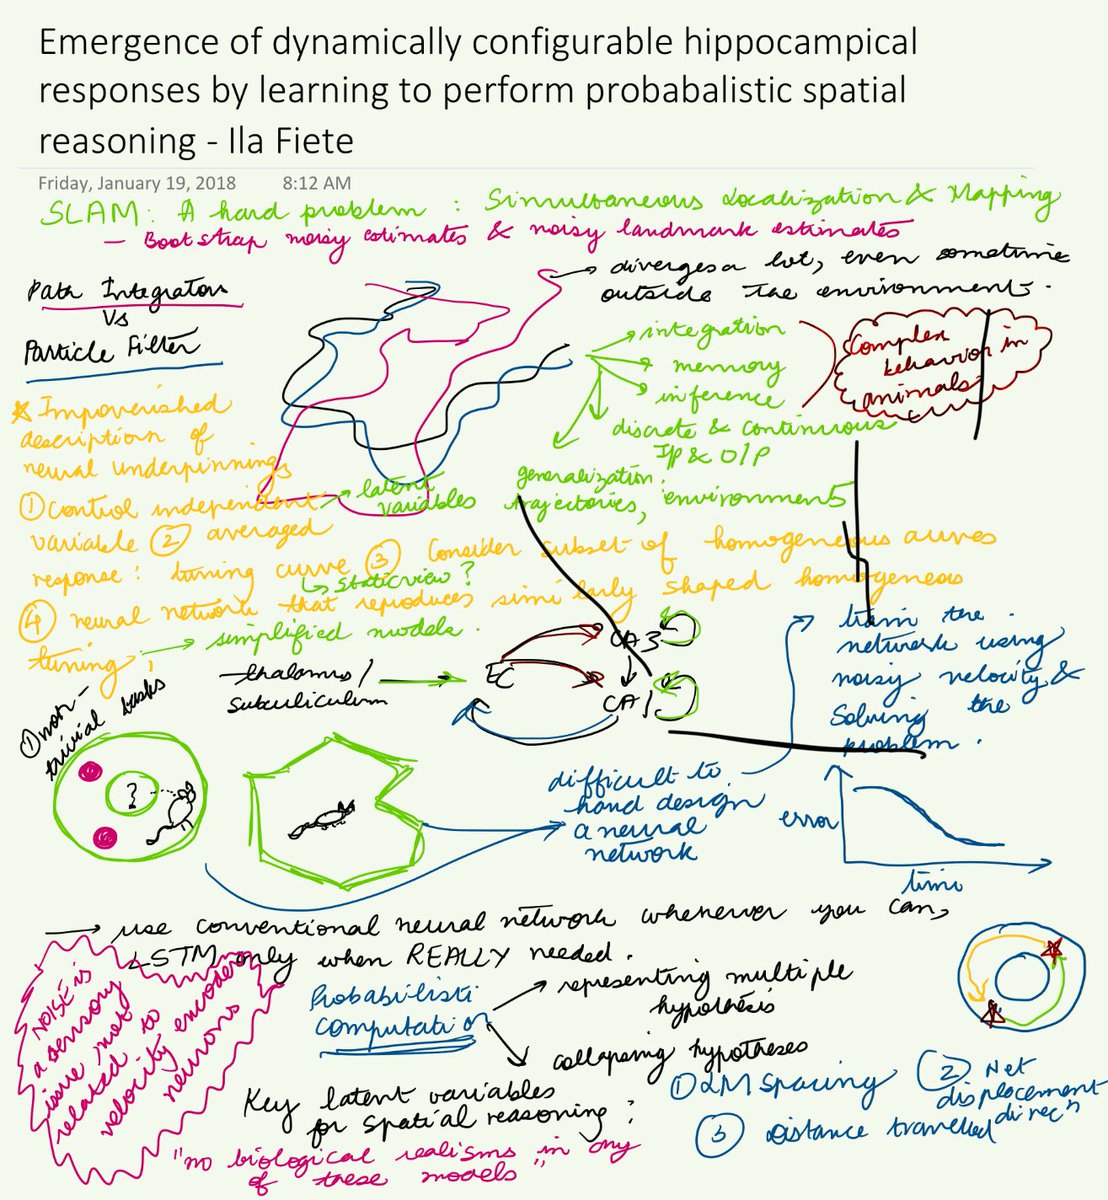 Emergence of dynamically configurable hippocampical
responses by learning to perform probabalistic spatial
reasoning - Ila Fiete
Friday, January 19, 2018 8:12 AM
SLAM: A hard problem : Simultaneous Localization & Mapping
- Bootstrap noisy estimates & noisy landmark estimates
→ diverges a lot, even sometime
outside the environments.
Path Integrators
Vs
Particle Filter
→ integration
→ memory
→ inference
discrete & continuous
I/P & O/P
generalization.
trajectories, environments
Complex
behavior in
animals
* Impoverished
description of
neural underpinnings
① control independent
variable ② averaged
response: tuning curve ③ Consider subset of homogeneous curves
④ neural network that reproduces similarly shaped homogeneous
tuning;
→ latent
variables
↳ static view?
→ simplified models.
thalamus/
subculiculum
→ EC
CA3
CA1
train the
network using
noisy velocity &
Solving the
problem.
① non-
trivial tasks
?
difficult to
hand design
a neural
network
error
time
→ use conventional neural network whenever you can,
LSTM only when REALLY needed.
NOISE is
a sensory
issue not
related to
velocity encoder
neurons
Probabilisti
computation
→ representing multiple
hypothesis
collapsing hypotheses
Key latent variables
for spatial reasoning:
① LM spacing
② Net
displacement
direcn
③ Distance travelled
"no biological realisms in any
of these models"